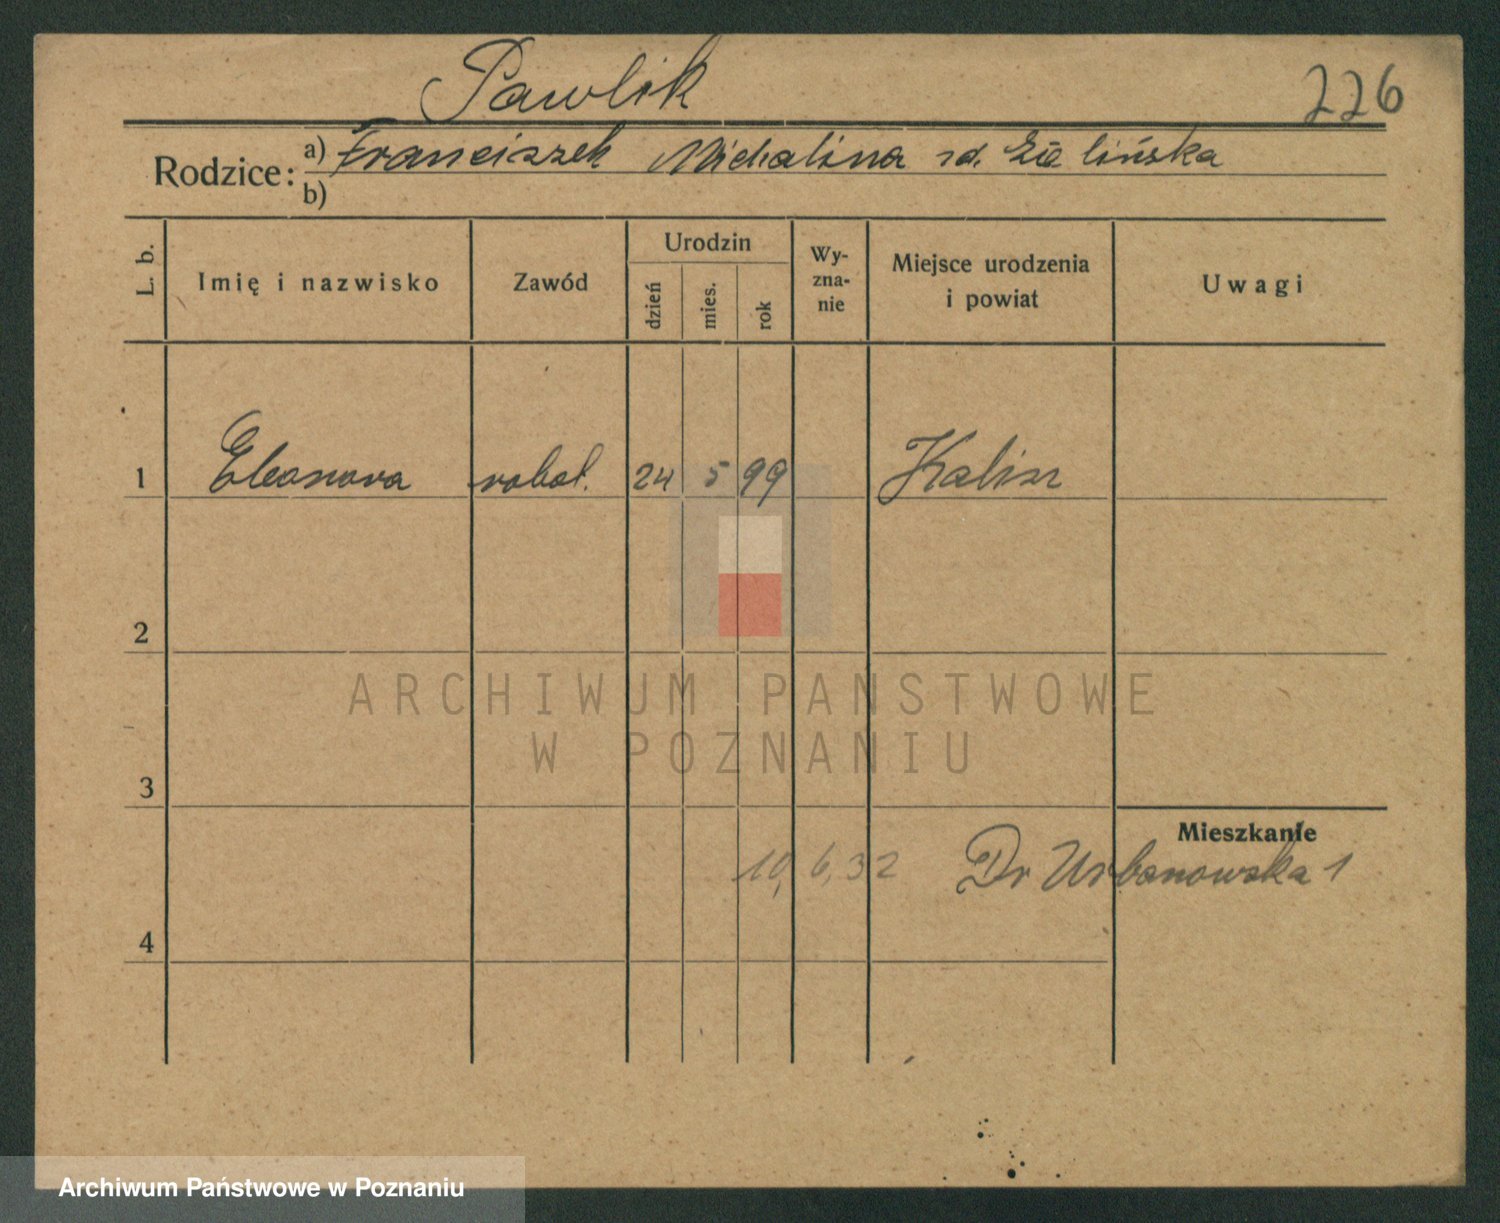 Pawlik
226
Rodzice: a) Franciszek Michalina zd. Zielińska
b)
L. b.
Imię i nazwisko
Zawód
Urodzin
dzień
mies.
rok
Wy-
zna-
nie
Miejsce urodzenia
i powiat
Uwagi
1 Eleonora robot. 24 5 99 Kalisz
2
ARCHIWUM PAŃSTWOWE
W POZNANIU
3
Mieszkanie
10, 6, 32 Dr Urbanowska 1
4
Archiwum Państwowe w Poznaniu